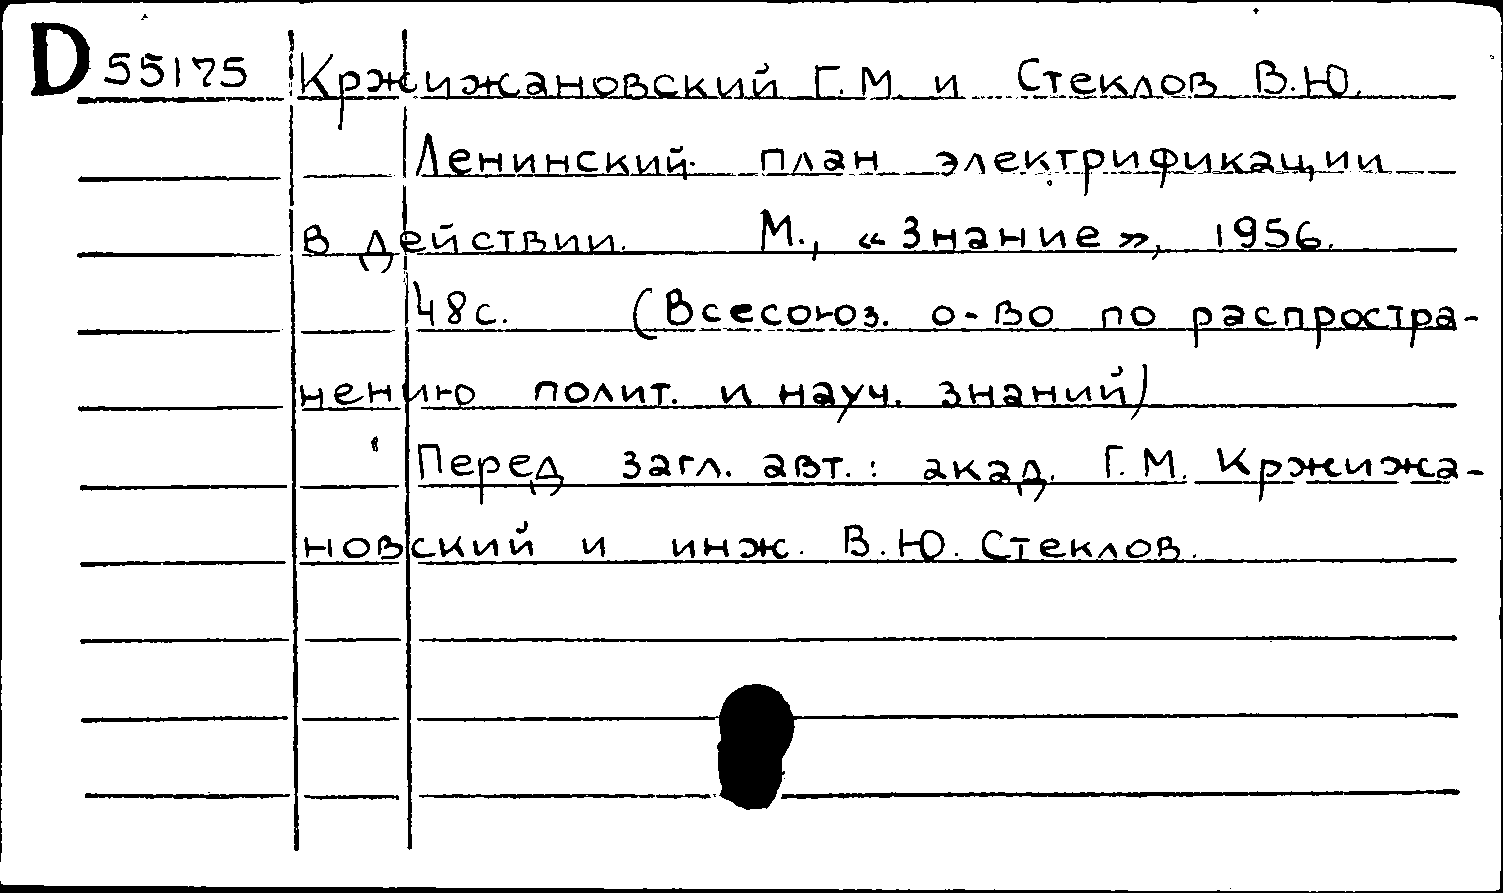 D 55175 Кржижановский Г.М. и Стеклов В.Ю.
Ленинский план электрификации
в действии. М., «Знание», 1956.
48с. (Всесоюз. о-во по распростра-
нению полит. и науч. знаний)
Перед загл. авт.: акад. Г.М. Кржижа-
новский и инж. В.Ю. Стеклов.